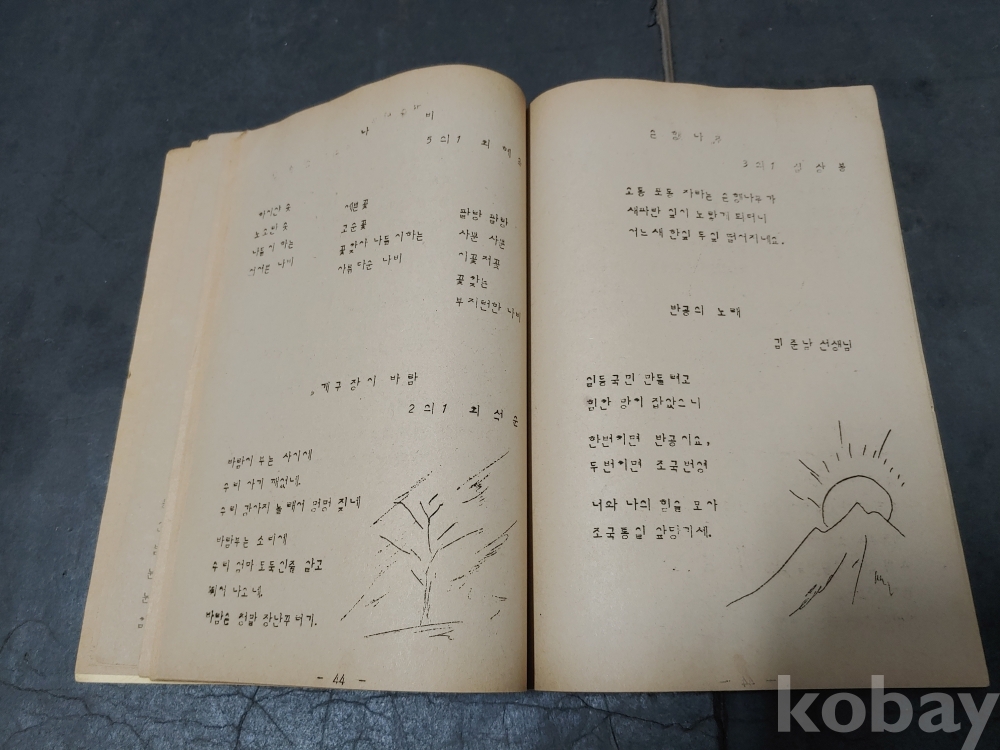 나 비
5의1 최
하이얀 꽃
노오란 꽃
나들이 하는
어여쁜 나비
예쁜꽃
고운꽃
꽃찾아 나들이하는
아름다운 나비
팔랑 팔랑
사뿐 사뿐
이꽃저꽃
꽃찾는
부지런한 나비
개구장이 바람
2의1 최석순
바람이 부는 사이에
우리 아기 깨었네.
우리 강아지 놀래서 멍멍 짖네
바람부는 소리에
우리 엄마 도둑인줄 알고
나고네.
바람은 정말 장난꾸러기.
- 44 -
은행나무
3의1 김상봉
오통 포통 자라는 은행나무가
새파란 잎이 노랗게 되더니
어느새 한잎 두잎 떨어지네요.
반공의 노래
김준남 선생님
힘든국민 만들려고
힘한 망치 잡았으니
한번치면 반공이요,
두번치면 조국번성
너와 나의 힘을 모아
조국통일 앞당기세.
kobay